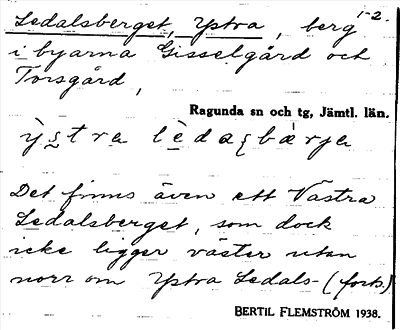 1-2.
Ledalsberget, Ystra, berg
i byarna Gisselgård och
Torsgård,
Ragunda sn och tg, Jämtl. län.
Det finns även ett Västra
Ledalsberget, som dock
icke ligger väster utan
norr om Ystra Ledals- (forts)
BERTIL FLEMSTRÖM 1938.